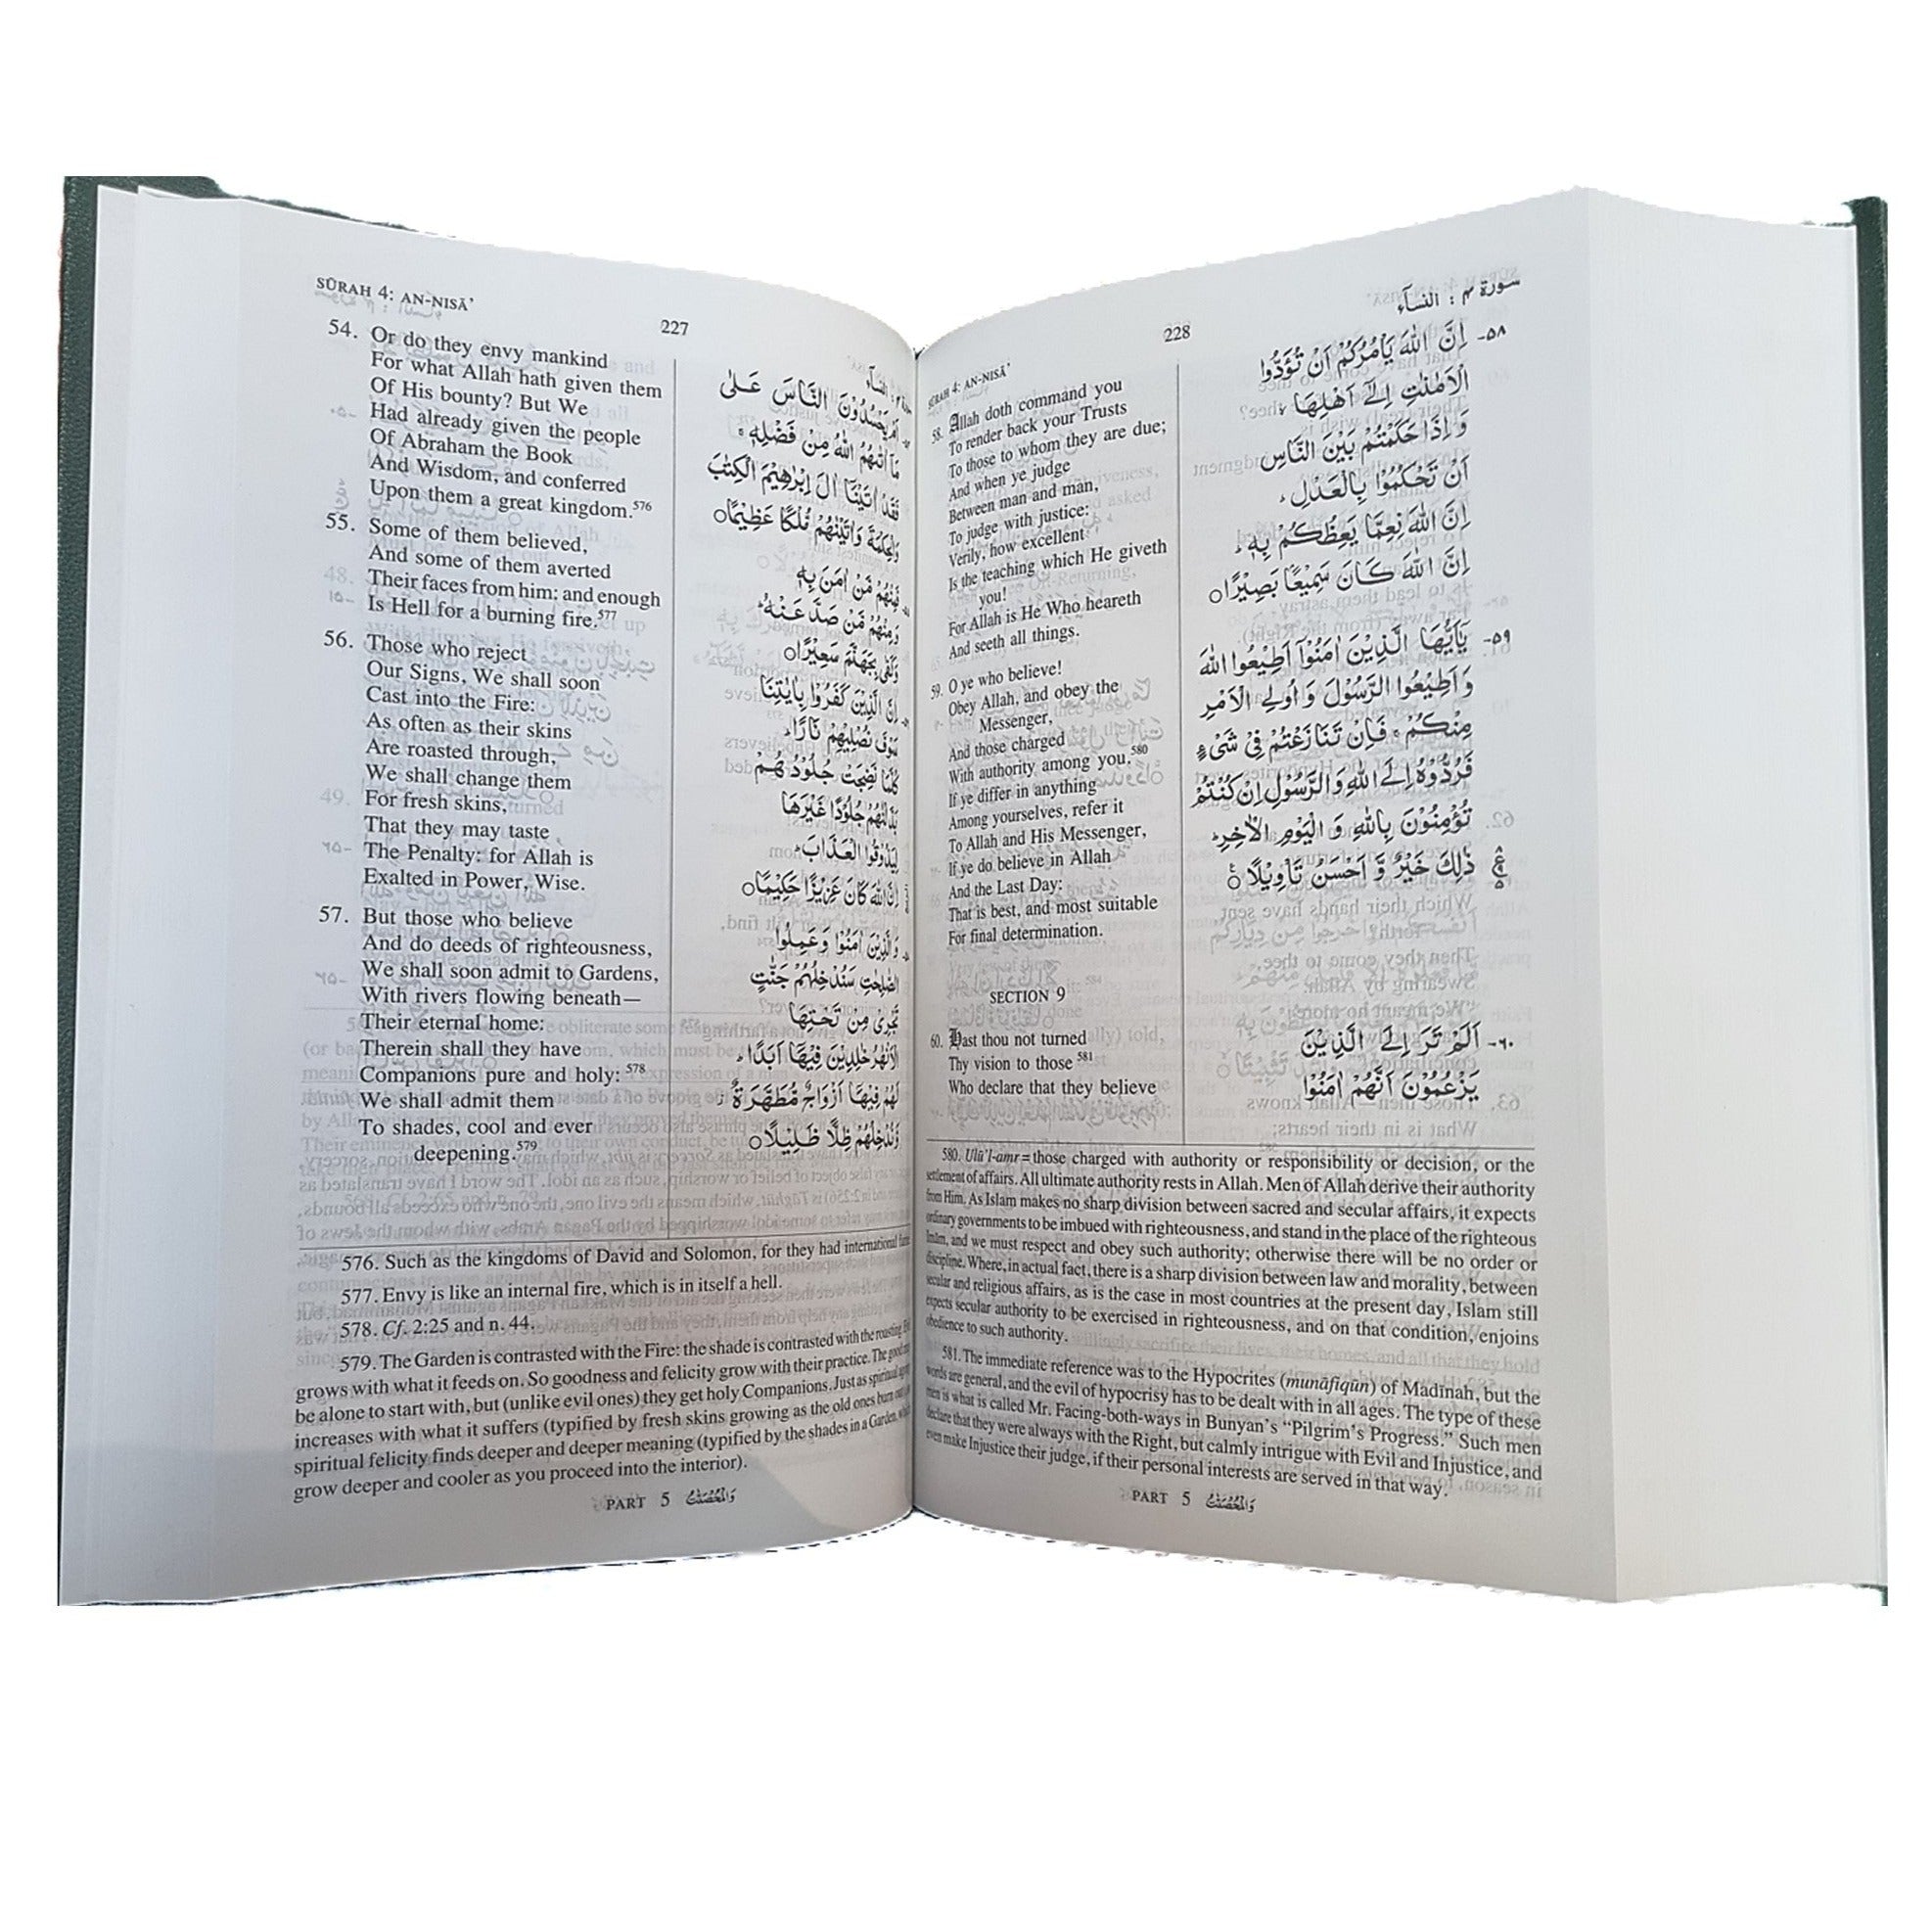 SŪRAH 4: AN-NISĀ’
227
54. Or do they envy mankind
For what Allah hath given them
Of His bounty? But We
Had already given the people
Of Abraham the Book
And Wisdom, and conferred
Upon them a great kingdom.576
55. Some of them believed,
And some of them averted
Their faces from him: and enough
Is Hell for a burning fire.577
56. Those who reject
Our Signs, We shall soon
Cast into the Fire:
As often as their skins
Are roasted through,
We shall change them
For fresh skins,
That they may taste
The Penalty: for Allah is
Exalted in Power, Wise.
57. But those who believe
And do deeds of righteousness,
We shall soon admit to Gardens,
With rivers flowing beneath—
Their eternal home:
Therein shall they have
Companions pure and holy: 578
We shall admit them
To shades, cool and ever
deepening.579
اَمْ يَحْسُدُوْنَ النَّاسَ عَلٰى
مَآ اٰتٰىهُمُ اللّٰهُ مِنْ فَضْلِهٖ ۚ
فَقَدْ اٰتَيْنَآ اٰلَ اِبْرٰهِيْمَ الْكِتٰبَ
وَالْحِكْمَةَ وَاٰتَيْنٰهُمْ مُّلْكًا عَظِيْمًا ○
فَمِنْهُمْ مَّنْ اٰمَنَ بِهٖ
وَمِنْهُمْ مَّنْ صَدَّ عَنْهُ ؕ
وَكَفٰى بِجَهَنَّمَ سَعِيْرًا ○
اِنَّ الَّذِيْنَ كَفَرُوْا بِاٰيٰتِنَا
سَوْفَ نُصْلِيْهِمْ نَارًا ؕ
كُلَّمَا نَضِجَتْ جُلُوْدُهُمْ
بَدَّلْنٰهُمْ جُلُوْدًا غَيْرَهَا
لِيَذُوْقُوا الْعَذَابَ ؕ
اِنَّ اللّٰهَ كَانَ عَزِيْزًا حَكِيْمًا ○
وَالَّذِيْنَ اٰمَنُوْا وَعَمِلُوا
الصّٰلِحٰتِ سَنُدْخِلُهُمْ جَنّٰتٍ
تَجْرِيْ مِنْ تَحْتِهَا
الْاَنْهٰرُ خٰلِدِيْنَ فِيْهَآ اَبَدًا ؕ
لَهُمْ فِيْهَآ اَزْوَاجٌ مُّطَهَّرَةٌ ؗ
وَّنُدْخِلُهُمْ ظِلًّا ظَلِيْلًا ○
576. Such as the kingdoms of David and Solomon, for they had international
577. Envy is like an internal fire, which is in itself a hell.
578. Cf. 2:25 and n. 44.
579. The Garden is contrasted with the Fire: the shade is contrasted with the roasting
grows with what it feeds on. So goodness and felicity grow with their practice. The good
be alone to start with, but (unlike evil ones) they get holy Companions. Just as spiritual
increases with what it suffers (typified by fresh skins growing as the old ones burn
spiritual felicity finds deeper and deeper meaning (typified by the shades in a Garden,
grow deeper and cooler as you proceed into the interior).
PART 5 وَالْمُحْصَنٰتُ
228
سورة ٤ : النسآء
SŪRAH 4: AN-NISĀ’
58. Allah doth command you
To render back your Trusts
To those to whom they are due;
And when ye judge
Between man and man,
To judge with justice:
Verily, how excellent
Is the teaching which He giveth
you!
For Allah is He Who heareth
And seeth all things.
59. O ye who believe!
Obey Allah, and obey the
Messenger,
And those charged
With authority among you.580
If ye differ in anything
Among yourselves, refer it
To Allah and His Messenger,
If ye do believe in Allah
And the Last Day:
That is best, and most suitable
For final determination.
SECTION 9
60. Hast thou not turned
Thy vision to those 581
Who declare that they believe
٥٨- اِنَّ اللّٰهَ يَاْمُرُكُمْ اَنْ تُؤَدُّوا
الْاَمٰنٰتِ اِلٰٓى اَهْلِهَا ۙ
وَاِذَا حَكَمْتُمْ بَيْنَ النَّاسِ
اَنْ تَحْكُمُوْا بِالْعَدْلِ ؕ
اِنَّ اللّٰهَ نِعِمَّا يَعِظُكُمْ بِهٖ ؕ
اِنَّ اللّٰهَ كَانَ سَمِيْعًا بَصِيْرًا ○
٥٩- يٰٓاَيُّهَا الَّذِيْنَ اٰمَنُوْٓا اَطِيْعُوا اللّٰهَ
وَاَطِيْعُوا الرَّسُوْلَ وَاُولِى الْاَمْرِ
مِنْكُمْ ۚ فَاِنْ تَنَازَعْتُمْ فِيْ شَيْءٍ
فَرُدُّوْهُ اِلَى اللّٰهِ وَالرَّسُوْلِ اِنْ كُنْتُمْ
تُؤْمِنُوْنَ بِاللّٰهِ وَالْيَوْمِ الْاٰخِرِ ؕ
ذٰلِكَ خَيْرٌ وَّاَحْسَنُ تَاْوِيْلًا ○
٦٠- اَلَمْ تَرَ اِلَى الَّذِيْنَ
يَزْعُمُوْنَ اَنَّهُمْ اٰمَنُوْا
580. Ulū’l-amr = those charged with authority or responsibility or decision, or the
settlement of affairs. All ultimate authority rests in Allah. Men of Allah derive their authority
from Him. As Islam makes no sharp division between sacred and secular affairs, it expects
ordinary governments to be imbued with righteousness, and stand in the place of the righteous
Imām, and we must respect and obey such authority; otherwise there will be no order or
discipline. Where, in actual fact, there is a sharp division between law and morality, between
secular and religious affairs, as is the case in most countries at the present day, Islam still
expects secular authority to be exercised in righteousness, and on that condition, enjoins
obedience to such authority.
581. The immediate reference was to the Hypocrites (munāfiqūn) of Madīnah, but the
words are general, and the evil of hypocrisy has to be dealt with in all ages. The type of these
men is what is called Mr. Facing-both-ways in Bunyan’s “Pilgrim’s Progress.” Such men
declare that they were always with the Right, but calmly intrigue with Evil and Injustice, and
even make Injustice their judge, if their personal interests are served in that way.
PART 5 وَالْمُحْصَنٰتُ